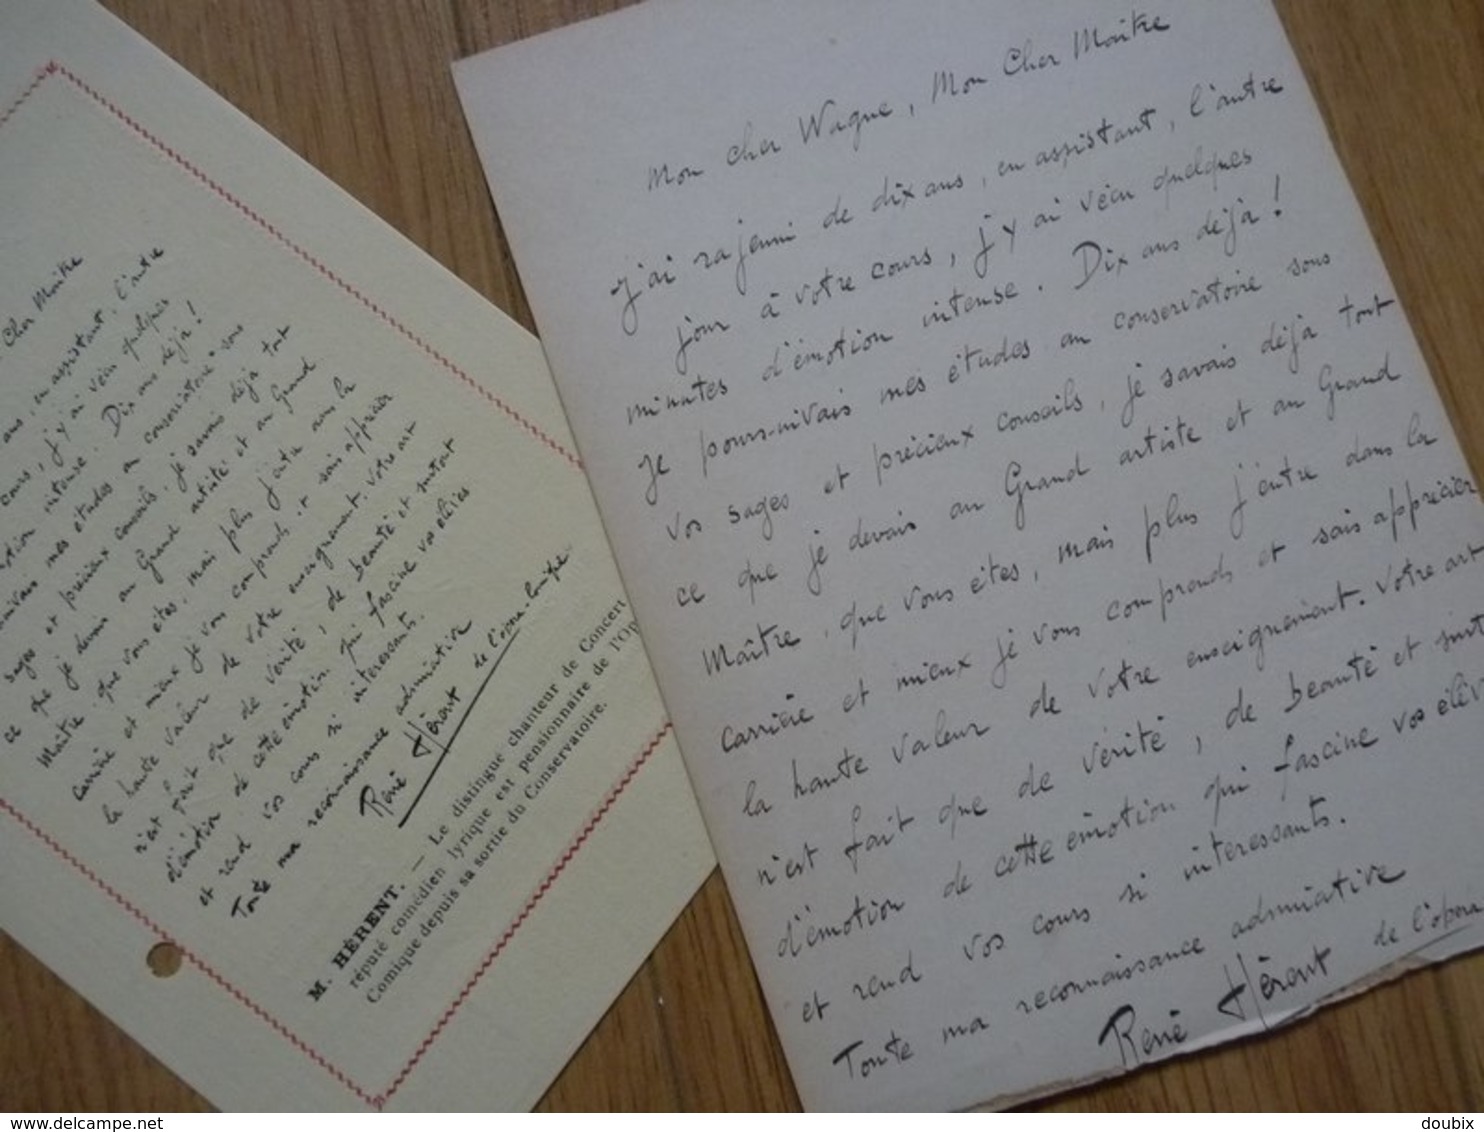 Cher Maître
ans, en assistant, l'autre
cours, j'y ai vécu quelques
intense. Dix ans déjà !
mes études au conservatoire sous
sages et précieux conseils, je savais déjà tout
ce que je devais au Grand artiste et au Grand
Maître, que vous êtes, mais plus j'entre dans la
carrière et mieux je vous comprends et sais apprécier
la haute valeur de votre enseignement. Votre art
n'est fait que de vérité, de beauté et surtout
d'émotion de cette émotion qui fascine vos élèves
et rend vos cours si interessants.
Toute ma reconnaissance admirative
René Hérent de l'opéra-comique
M. HÉRENT. — Le distingué chanteur de Concert
réputé comédien lyrique est pensionnaire de l'Op
Comique depuis sa sortie du Conservatoire.
Mon cher Wague, Mon Cher Maître
J'ai rajeuni de dix ans, en assistant, l'autre
jour à votre cours, j'y ai vécu quelques
minutes d'émotion intense. Dix ans déjà !
Je poursuivais mes études au conservatoire sous
vos sages et précieux conseils, je savais déjà tout
ce que je devais au Grand artiste et au Grand
Maître, que vous êtes, mais plus j'entre dans la
carrière et mieux je vous comprends et sais apprécier
la haute valeur de votre enseignement. Votre art
n'est fait que de vérité, de beauté et surt
d'émotion de cette émotion qui fascine vos élèv
et rend vos cours si interessants.
Toute ma reconnaissance admirative
René Hérent de l'opera
delcampe.net
doubix